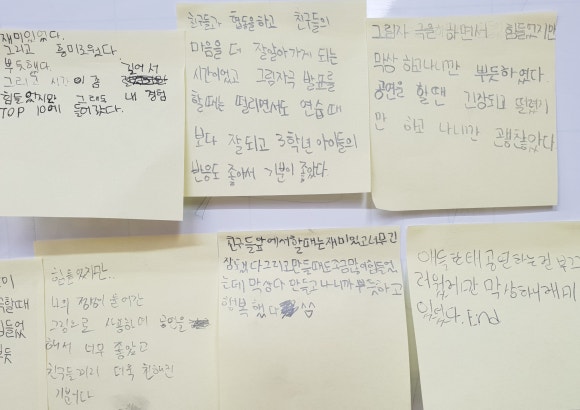 재미있었다.
그리고 흥미로웠다
뿌듯했다 길어서
그리고 시간이 좀
힘들었지만 그래도 내 경험
TOP 10에 들어갔다.
친구들과 협동을 하고 친구들의
마음을 더 잘알아가게 되는
시간이었고 그림자극 발표를
할때는 떨리면서도 연습 때
보다 잘되고 3학년 아이들의
반응도 좋아서 기분이 좋았다.
그림자 극을 하면서 힘들었지만
막상 하고나니깐 뿌듯하였다.
공연을 할 땐 긴장되고 떨렸지
만 하고 나니깐 괜찮았다
이
할때
힘들었
뿌듯
힘들었지만...
나의 정성이 들어간
그림으로 사용하여 공연을
해서 너무 좋았고
친구들끼리 더욱 친해진
기분이다
친구들앞에서할때는재미있고너무긴
장됐다그리고만들때도조금많이힘들었
는데 막상다 만들고나니까뿌듯하고
행복했다
애들한테 공연하는건 부끄
러웠지만 막상하니재미
있었다. End